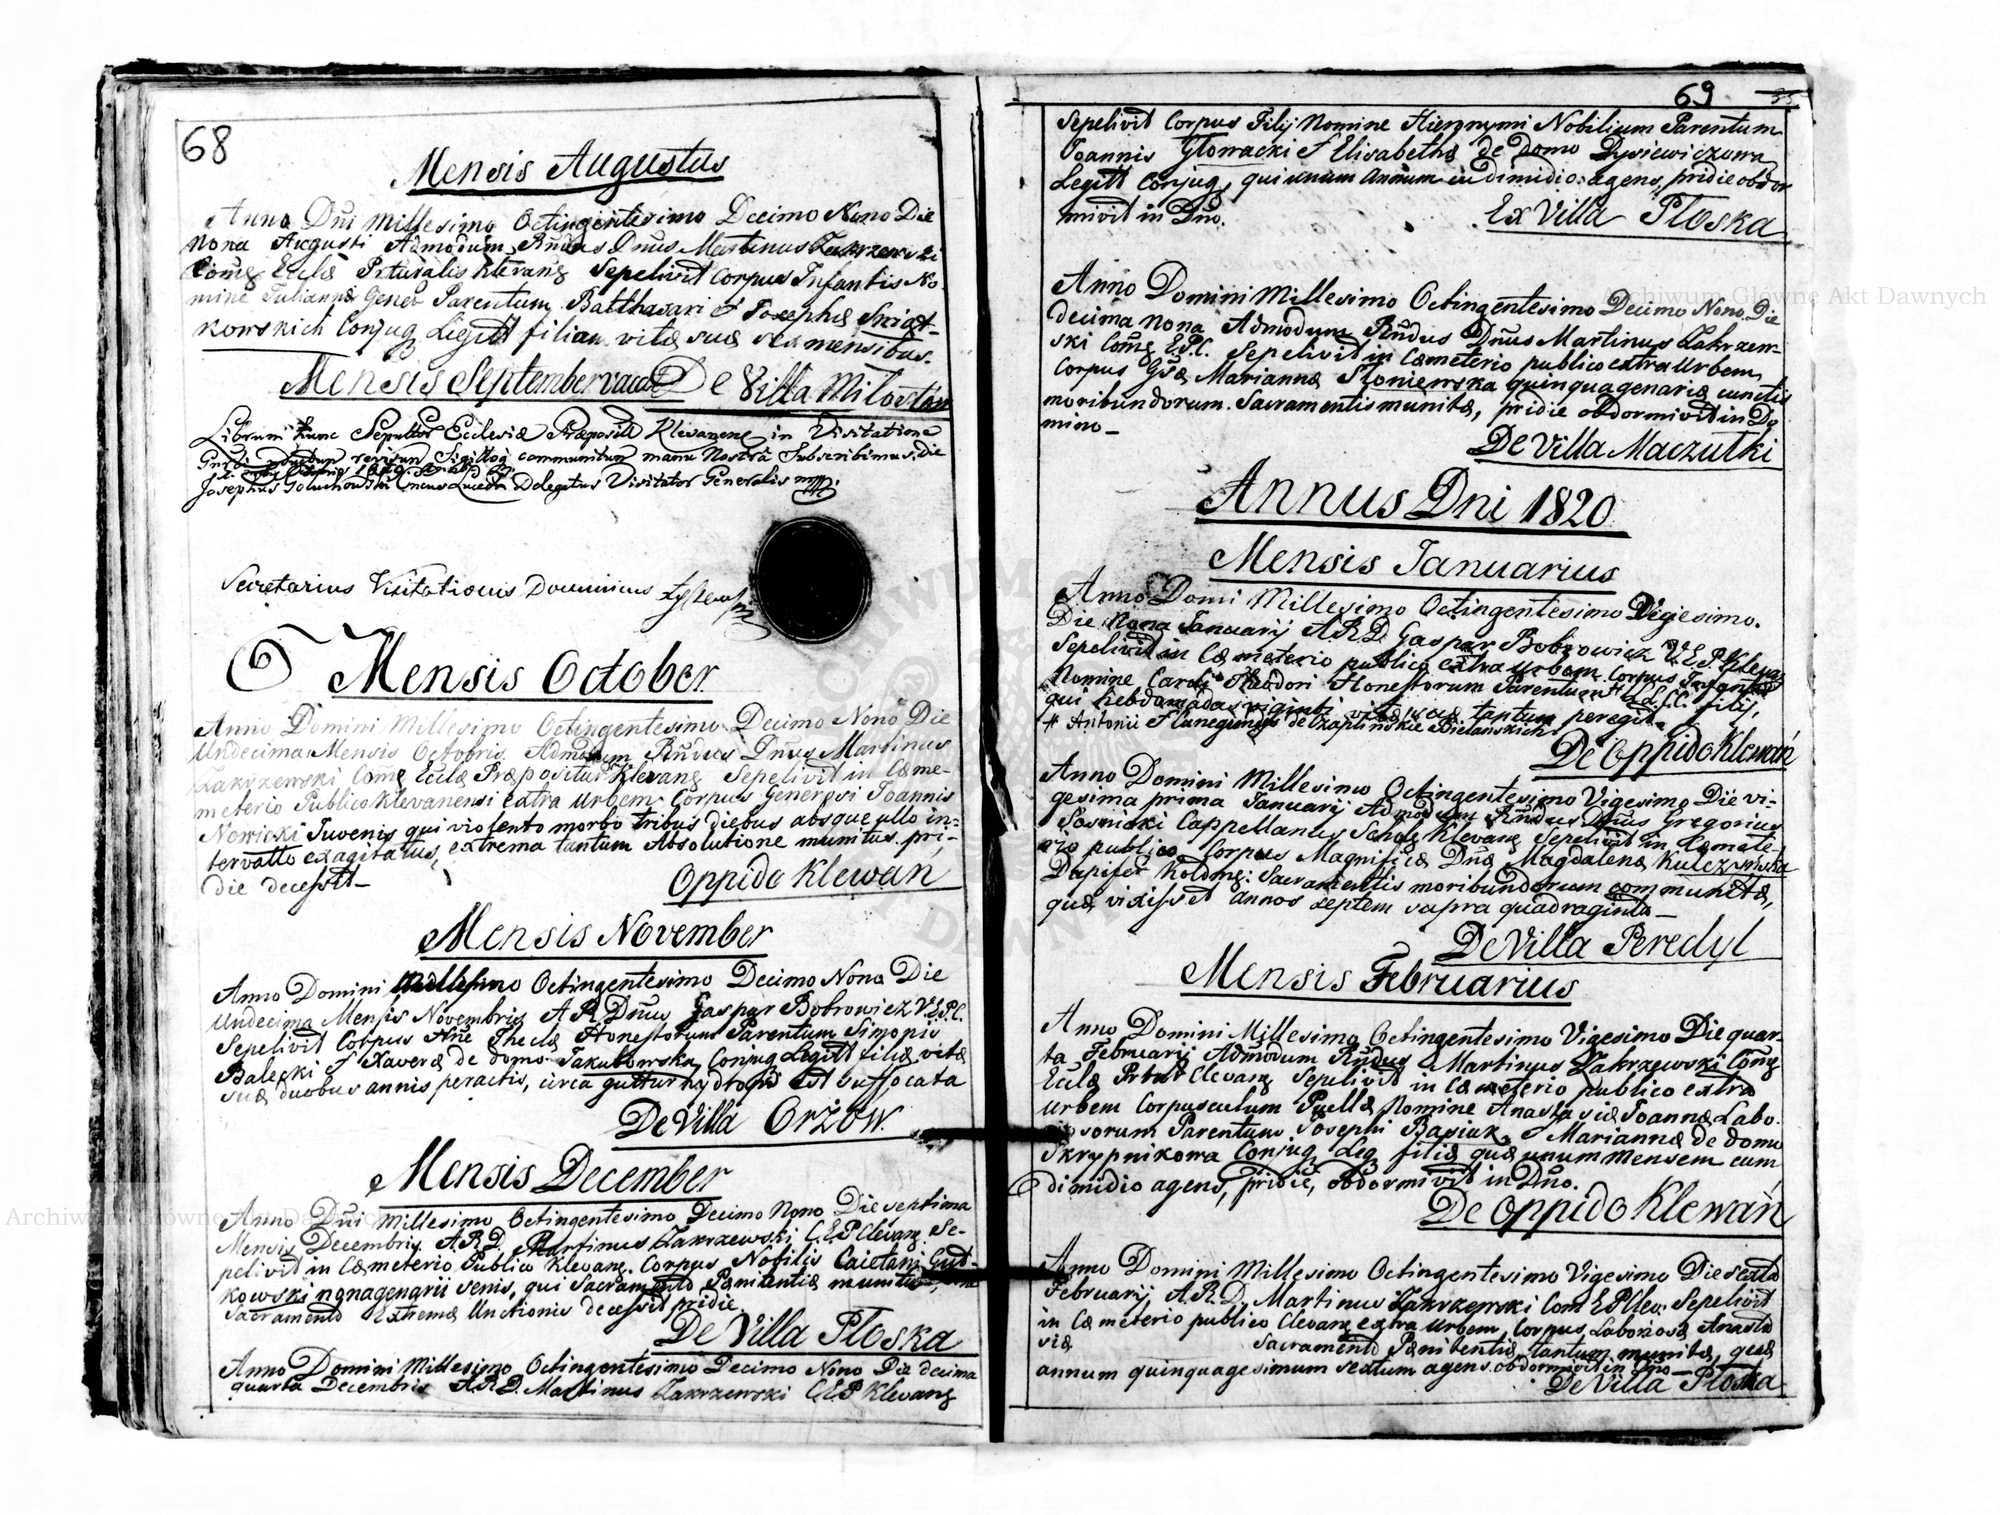 68
Mensis Augustus
Anno Dni Millesimo Octingentesimo Decimo Nono Die
Nona Augusti Admodum Rndus Dnus Martinus Zakrzewski
Come Eccla Klevane Sepelivit Corpus Infantis No-
mine Julianna Gener Parentum Balthasari et Josephæ Swiat-
kowskich Conjug Legitt filiam vitæ suæ sex mensibus.
Mensis September vacat De Villa Milostow
Librum hunc Sepultor Ecclesiæ Præposit Klevanens in Visitatione
revisum Sigilloq communitum manu Nostra Subscribimus, die
Josephus Delegatus Visitator Generalis mpp
Secretarius Visitationis Dominicus
Mensis October
Anno Domini Millesimo Octingentesimo Decimo Nono Die
Undecima Mensis Octobris Admodum Rndus Dnus Martinus
Zakrzewski Come Eccla Præpositur Klevane Sepelivit in Cæme-
meterio Publico Klevanensi extra Urbem Corpus Generosi Joannis
Nowicki Juvenis qui violento morbo tribus diebus absque ullo in-
tervallo exagitatus, extrema tantum Absolutione munitus pri-
die decessit_
Oppido Klewań
Mensis November
Anno Domini Millesimo Octingentesimo Decimo Nono Die
Undecima Mensis Novembris A R Dnus Gaspar Bobrowicz V.E.P.C.
Sepelivit Corpus Theclæ Honestorum Parentum Simonis
Balecki et Xaveræ de domo Jakubowska Conjug Legitt filiæ vitæ
suæ duobus annis peractis, circa guttur est suffocata
De Villa Orżow.
Mensis December
Anno Dni Millesimo Octingentesimo Decimo Nono Die septima
Mensis Decembris A.R.D. Martinus Zakrzewski C.E.P Clevane Se-
pelivit in Cæmeterio Publico Klevane. Corpus Nobilis Caietani Gut-
kowski nonagenarii senis, qui Sacramento Pænitentiæ munitus,
Sacramento Extremæ Unctionis decessit pridie.
De Villa Płoska
Anno Domini Millesimo Octingentesimo Decimo Nono Die decima
quarta Decembris A.R.D. Martinus Zakrzewski C.E.P Klevane
69
Sepelivit Corpus Filij Nomine Hieronymi Nobilium Parentum
Joannis Głowacki et Elisabethæ de Domo Lysiewiczowa
Legitt Conjug, qui unum annum cu dimidio agens, pridie obdor
mivit in Dno.
Ex Villa Płoska
Anno Domini Millesimo Octingentesimo Decimo Nono Die
decima nona Admodum Rndus Dnus Martinus Zakrzew-
ski Come E.P.C. Sepelivit in Cæmeterio publico extra Urbem
Corpus Gsæ Mariannæ Słoniewska quinquagenariæ cunctis
moribundorum Sacramentis munitæ, pridie obdormivit in Do
mino_
De Villa Maczulki
Annus Dni 1820
Mensis Januarius
Anno Domi Millesimo Octingentesimo Vigesimo.
Die Nona Januarij A.R.D. Gaspar Bobrowicz V.E.P. Klevan
Sepelivit in Cæmeterio publico extra urbem Corpus Infantis
Nomine Caroli Theodori Honestorum Parentum # L.L.C.C. filij,
qui hebdomadas viginti vitæ suæ tantum peregit.
# Antonii et Kunegundis de Czaplinskie Bielanskich
De Oppido Klewań
Anno Domini Millesimo Octingentesimo Vigesimo Die vi-
gesima prima Januarij Admodum Rndus Dnus Gregorius
Sosnicki Cappellanus Schole Klevane Sepelivit in Cæmete-
rio publico Corpus Magnificæ Dnæ Magdalenæ Kulczynska
Dapifer Sacramentis moribundorum communitæ,
quæ vixisset annos septem supra quadraginta_
De Villa Peredyl
Mensis Februarius
Anno Domini Millesimo Octingentesimo Vigesimo Die quar-
ta Februarij Admodum Rndus Martinus Zakrzewski Come
Eclæ Clevane Sepelivit in Cæmeterio publico extra
Urbem Corpusculum Puellæ Nomine Anastasiæ Joannæ Labo-
riosorum Parentum Josephi Basiuk et Mariannæ de domo
Skrypnikowa Conjug Leg filiæ quæ unum Mensem cum
dimidio agens, pridie, obdormivit in Dno.
De Oppido Klewań
Anno Domini Millesimo Octingentesimo Vigesimo Die sexta
Februarij A.R.D. Martinus Zakrzewski Com E P Clev: Sepelivit
in Cæmeterio publico Clevane extra Urbem Corpus Laboriosæ Anasta
siæ Sacramento Pænitentiæ tantum munitæ, quæ
annum quinquagesimum sextum agens obdormivit in Dno_
De Villa Płoska
Archiwum Główne Akt Dawnych
Archiwum Główne Akt Dawnych